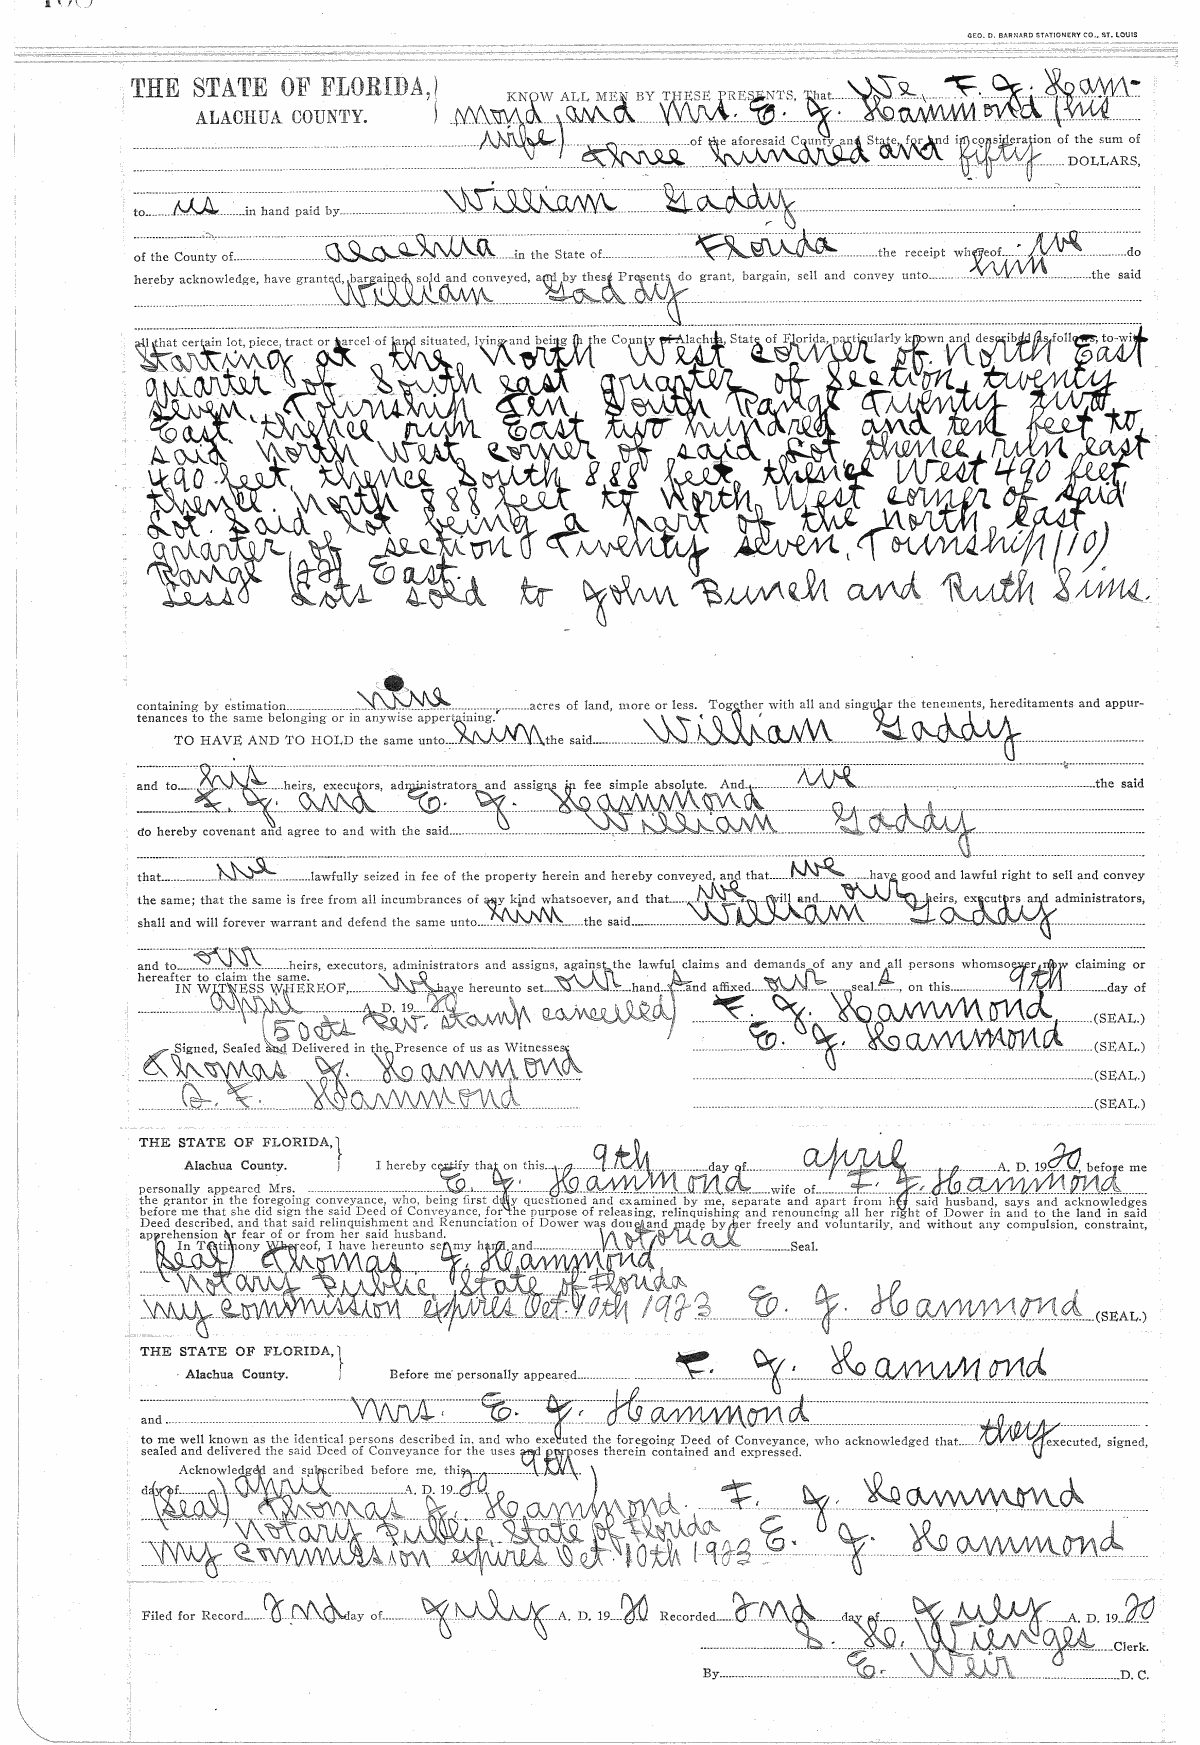 GEO. D. BARNARD STATIONERY CO., ST. LOUIS
THE STATE OF FLORIDA, KNOW ALL MEN BY THESE PRESENTS, That We, F. J. Ham-
ALACHUA COUNTY. mond and Mrs. E. J. Hammond (his
wife) of the aforesaid County and State, for and in consideration of the sum of
three hundred and fifty DOLLARS,
to us in hand paid by William Gaddy
of the County of Alachua in the State of Florida the receipt whereof we do
hereby acknowledge, have granted, bargained, sold and conveyed, and by these Presents do grant, bargain, sell and convey unto him the said
William Gaddy
all that certain lot, piece, tract or parcel of land situated, lying and being in the County of Alachua, State of Florida, particularly known and described as follows, to-wit:
Starting at the North West corner of North East
quarter of South east quarter of Section twenty
seven, Township Ten, South Range Twenty two
East thence run East two hundred and ten feet to
said North West corner of said Lot thence run east
490 feet, thence South 888 feet, thence West 490 feet
thence North 888 feet to North West corner of said
Lot. Said lot being a part of the north east
quarter of section Twenty seven, Township (10)
Range (22) East.
Less Lots sold to John Bunch and Ruth Sims.
containing by estimation nine acres of land, more or less. Together with all and singular the tenements, hereditaments and appur-
tenances to the same belonging or in anywise appertaining.
TO HAVE AND TO HOLD the same unto him the said William Gaddy
and to his heirs, executors, administrators and assigns in fee simple absolute. And we the said
F. J. and E. J. Hammond
do hereby covenant and agree to and with the said William Gaddy
that we lawfully seized in fee of the property herein and hereby conveyed, and that we have good and lawful right to sell and convey
the same; that the same is free from all incumbrances of any kind whatsoever, and that we will and our heirs, executors and administrators,
shall and will forever warrant and defend the same unto him the said William Gaddy
and to our heirs, executors, administrators and assigns, against the lawful claims and demands of any and all persons whomsoever, now claiming or
hereafter to claim the same.
IN WITNESS WHEREOF, We have hereunto set our hand s and affixed our seal s, on this 9th day of
April A. D. 19 20 F. J. Hammond (SEAL.)
(50cts Rev. stamp cancelled) E. J. Hammond (SEAL.)
Signed, Sealed and Delivered in the Presence of us as Witnesses:
Thomas J. Hammond (SEAL.)
A. F. Hammond (SEAL.)
THE STATE OF FLORIDA,
Alachua County. I hereby certify that on this 9th day of April A. D. 19 20, before me
personally appeared Mrs. E. J. Hammond wife of F. J. Hammond
the grantor in the foregoing conveyance, who, being first duly questioned and examined by me, separate and apart from her said husband, says and acknowledges
before me that she did sign the said Deed of Conveyance, for the purpose of releasing, relinquishing and renouncing all her right of Dower in and to the land in said
Deed described, and that said relinquishment and Renunciation of Dower was done and made by her freely and voluntarily, and without any compulsion, constraint,
apprehension or fear of or from her said husband.
In Testimony Whereof, I have hereunto set my hand and notorial Seal.
(Seal) Thomas J. Hammond
Notary Public, State of Florida
My commission expires Oct. 10th 1923 E. J. Hammond (SEAL.)
THE STATE OF FLORIDA,
Alachua County. Before me personally appeared F. J. Hammond
and Mrs. E. J. Hammond
to me well known as the identical persons described in, and who executed the foregoing Deed of Conveyance, who acknowledged that they executed, signed,
sealed and delivered the said Deed of Conveyance for the uses and purposes therein contained and expressed.
Acknowledged and subscribed before me, this 9th
day of April A. D. 19 20
(Seal) Thomas J. Hammond. F. J. Hammond
Notary Public, State of Florida
My commission expires Oct. 10th 1923 E. J. Hammond
Filed for Record 2nd day of July A. D. 19 20 Recorded 2nd day of July A. D. 19 20
S. H. Wienges Clerk.
By E. Weir D. C.